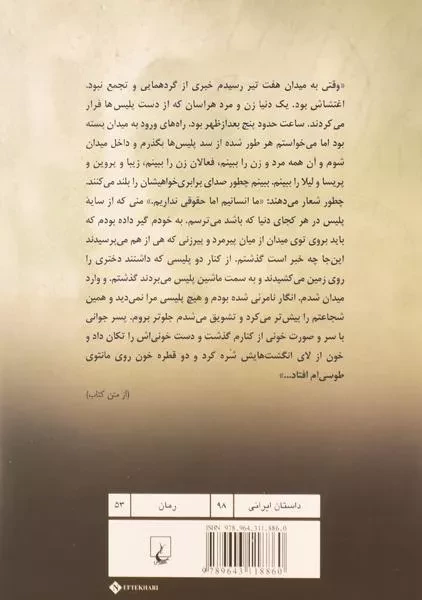 «وقتی به میدان هفت تیر رسیدم خبری از گردهمایی و تجمع نبود.
اغتشاش بود. یک دنیا زن و مرد هراسان که از دست پلیس‌ها فرار
می‌کردند. ساعت حدود پنج بعدازظهر بود. راه‌های ورود به میدان بسته
بود اما می‌خواستم هر طور شده از سد پلیس‌ها بگذرم و داخل میدان
شوم و آن همه مرد و زن را ببینم، فعالان زن را ببینم، زیبا و پروین و
پریسا و لیلا را ببینم. ببینم چطور صدای برابری‌خواهیشان را بلند می‌کنند.
چطور شعار می‌دهند: «ما انسانیم اما حقوقی نداریم.» منی که از سایهٔ
پلیس در هر کجای دنیا که باشد می‌ترسم. به خودم گیر داده بودم که
باید بروی توی میدان از میان پیرمرد و پیرزنی که هی از هم می‌پرسیدند
این‌جا چه خبر است گذشتم. از کنار دو پلیسی که داشتند دختری را
روی زمین می‌کشیدند و به سمت ماشین پلیس می‌بردند گذشتم. و وارد
میدان شدم. انگار نامرئی شده بودم و هیچ پلیسی مرا نمی‌دید و همین
شجاعتم را بیش‌تر می‌کرد و تشویق می‌شدم جلوتر بروم. پسر جوانی
با سر و صورت خونی از کنارم گذشت و دست خونی‌اش را تکان داد و
خون از لای انگشت‌هایش شُره کرد و دو قطره خون روی مانتوی
طوسی‌ام افتاد...»
(از متن کتاب)
داستان ایرانی ۹۸ رمان ۵۳
ISBN 978.964.311.886.0
9789643118860
EFTEKHARI